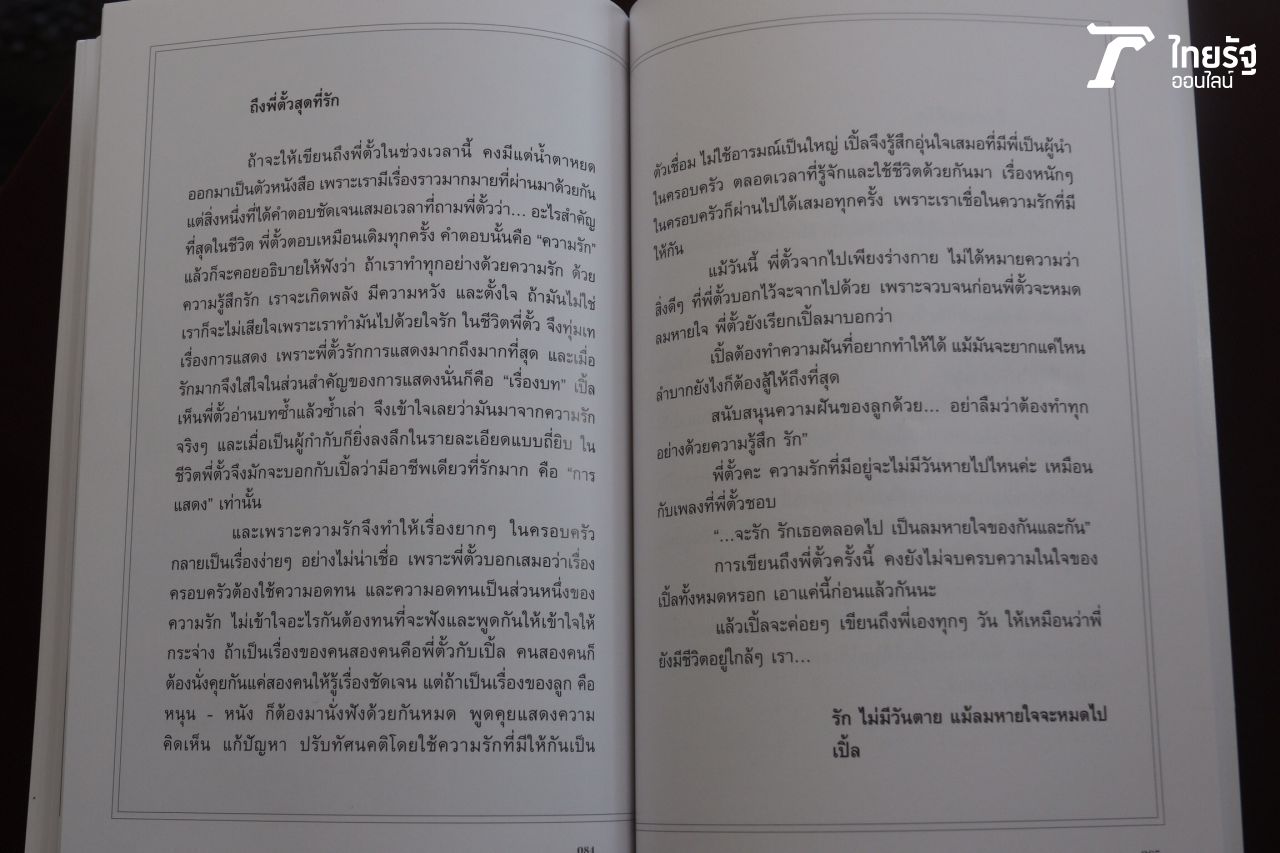 ไทยรัฐ
ออนไลน์
ถึงพี่ตั้วสุดที่รัก
ถ้าจะให้เขียนถึงพี่ตั้วในช่วงเวลานี้ คงมีแต่น้ำตาหยด
ออกมาเป็นตัวหนังสือ เพราะเรามีเรื่องราวมากมายที่ผ่านมาด้วยกัน
แต่สิ่งหนึ่งที่ได้คำตอบชัดเจนเสมอเวลาที่ถามพี่ตั้วว่า... อะไรสำคัญ
ที่สุดในชีวิต พี่ตั้วตอบเหมือนเดิมทุกครั้ง คำตอบนั้นคือ “ความรัก”
แล้วก็จะคอยอธิบายให้ฟังว่า ถ้าเราทำทุกอย่างด้วยความรัก ด้วย
ความรู้สึกรัก เราจะเกิดพลัง มีความหวัง และตั้งใจ ถ้ามันไม่ใช่
เราก็จะไม่เสียใจเพราะเราทำมันไปด้วยใจรัก ในชีวิตพี่ตั้ว จึงทุ่มเท
เรื่องการแสดง เพราะพี่ตั้วรักการแสดงมากถึงมากที่สุด และเมื่อ
รักมากจึงใส่ใจในส่วนสำคัญของการแสดงนั่นก็คือ “เรื่องบท” เปิ้ล
เห็นพี่ตั้วอ่านบทซ้ำแล้วซ้ำเล่า จึงเข้าใจเลยว่ามันมาจากความรัก
จริงๆ และเมื่อเป็นผู้กำกับก็ยิ่งลงลึกในรายละเอียดแบบถี่ยิบ ใน
ชีวิตพี่ตั้วจึงมักจะบอกกับเปิ้ลว่ามีอาชีพเดียวที่รักมาก คือ “การ
แสดง” เท่านั้น
และเพราะความรักจึงทำให้เรื่องยากๆ ในครอบครัว
กลายเป็นเรื่องง่ายๆ อย่างไม่น่าเชื่อ เพราะพี่ตั้วบอกเสมอว่าเรื่อง
ครอบครัวต้องใช้ความอดทน และความอดทนเป็นส่วนหนึ่งของ
ความรัก ไม่เข้าใจอะไรกันต้องทนที่จะฟังและพูดกันให้เข้าใจให้
กระจ่าง ถ้าเป็นเรื่องของคนสองคนคือพี่ตั้วกับเปิ้ล คนสองคนก็
ต้องนั่งคุยกันแค่สองคนให้รู้เรื่องชัดเจน แต่ถ้าเป็นเรื่องของลูก คือ
หนุน - หนัง ก็ต้องมานั่งฟังด้วยกันหมด พูดคุยแสดงความ
คิดเห็น แก้ปัญหา ปรับทัศนคติโดยใช้ความรักที่มีให้กันเป็น
084
ตัวเชื่อม ไม่ใช้อารมณ์เป็นใหญ่ เปิ้ลจึงรู้สึกอุ่นใจเสมอที่มีพี่เป็นผู้นำ
ในครอบครัว ตลอดเวลาที่รู้จักและใช้ชีวิตด้วยกันมา เรื่องหนักๆ
ในครอบครัวก็ผ่านไปได้เสมอทุกครั้ง เพราะเราเชื่อในความรักที่มี
ให้กัน
แม้วันนี้ พี่ตั้วจากไปเพียงร่างกาย ไม่ได้หมายความว่า
สิ่งดีๆ ที่พี่ตั้วบอกไว้จะจากไปด้วย เพราะจวบจนก่อนพี่ตั้วจะหมด
ลมหายใจ พี่ตั้วยังเรียกเปิ้ลมาบอกว่า
เปิ้ลต้องทำความฝันที่อยากทำให้ได้ แม้มันจะยากแค่ไหน
ลำบากยังไงก็ต้องสู้ให้ถึงที่สุด
สนับสนุนความฝันของลูกด้วย... อย่าลืมว่าต้องทำทุก
อย่างด้วยความรู้สึก รัก”
พี่ตั้วคะ ความรักที่มีอยู่จะไม่มีวันหายไปไหนค่ะ เหมือน
กับเพลงที่พี่ตั้วชอบ
“...จะรัก รักเธอตลอดไป เป็นลมหายใจของกันและกัน”
การเขียนถึงพี่ตั้วครั้งนี้ คงยังไม่จบครบความในใจของ
เปิ้ลทั้งหมดหรอก เอาแค่นี้ก่อนแล้วกันนะ
แล้วเปิ้ลจะค่อยๆ เขียนถึงพี่เองทุกๆ วัน ให้เหมือนว่าพี่
ยังมีชีวิตอยู่ใกล้ๆ เรา...
รัก ไม่มีวันตาย แม้ลมหายใจจะหมดไป
เปิ้ล